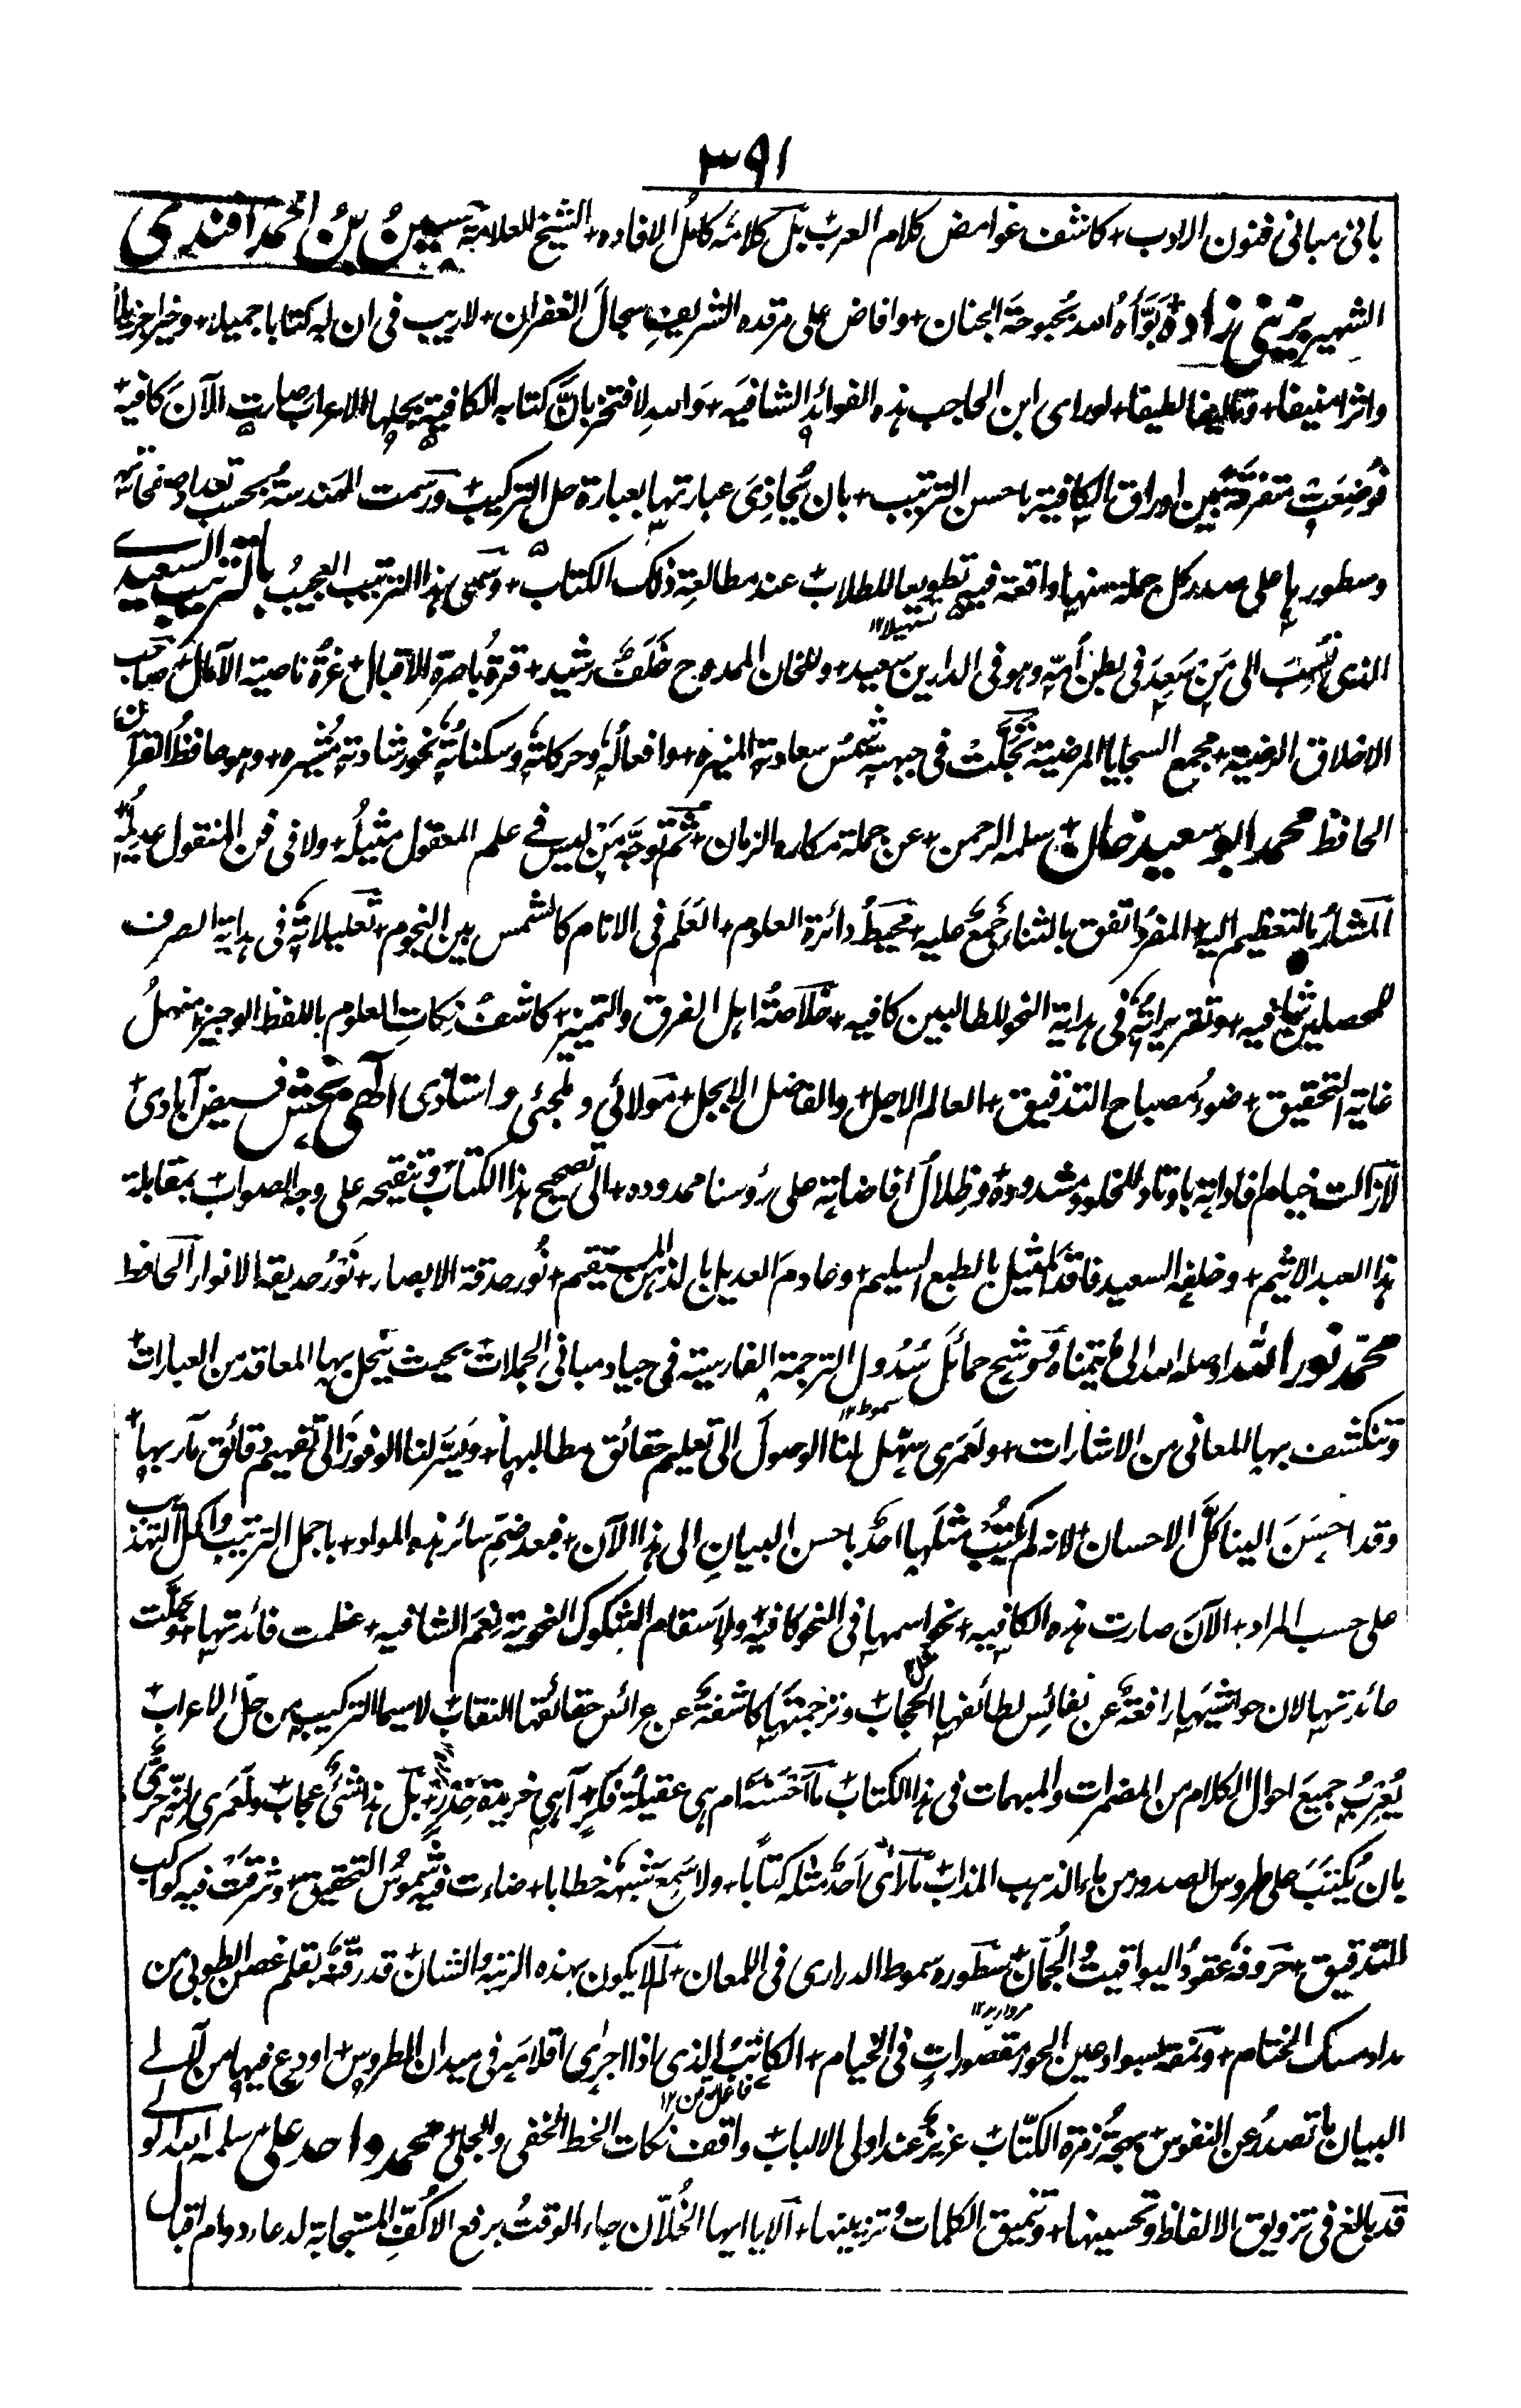 ٣٩١
بانی مبانی فنون الادب + کاشف غوامض کلام العرب بل کلامه کامل الافاده + الشیخ العلامة حسین بن احمد افندی
الشهیر بزینی زاده بوّأه الله بحبوحة الجنان + وافاض علی مرقده الشریف سجال الغفران + لاریب فی ان له کتابا جمیلا + وخیرا جزیلا
واثرا منیفا + وتالیفا لطیفا + لورای ابن الحاجب هذه الفوائد الشافیه + والله لافتخر بانّ کتابه الکافیة بحلها الاعراب صارت الآن کافیه +
فوضعت متفرقة بین اوراق الکافیة باحسن الترتیب + بان یحاذی عبارتها بعبارة حل الترکیب + ورسمت الهندسة بحسب تعداد صفحاته
وسطورها علی صدر کل جملة منها واقعة فیه تطویعا للطلاب عند مطالعة ذلک الکتاب + وسمی هذا الترتیب العجیب بالترتیب السعیدی
تسهیلا ١٢
الذی نسب الی من سعد فی بطن امّه وهو فی الدارین سعید + وللخان الممدوح خلف رشید + قرة باصرة الاقبال + غرة ناصیة الآمال صاحب
الاخلاق الرضیة + مجمع السجایا المرضیة تجلت فی جبهته شمس سعادته المنیره + وافعاله وحرکاته وسکناته نحو رشادته مشیره + وهو حافظ القرآن
الحافظ محمد ابو سعید خان + سلمه الرحمن + عن جملة مکاره الزمان + ثم توجه من لیس فی علم المعقول مثیله + ولا فی فن المنقول عدیله
المشار بالتعظیم الیه + المفرد اتفق بالثناء جمع علیه + محیط دائرة العلوم + العلم فی الانام کالشمس بین النجوم + تعلیلاته فی هدایة الصرف
للمحصلین شافیه + وتقریراته فی هدایة النحو للطالبین کافیه + خلاصة اهل الفرق والتمییز + کاشف نکات العلوم باللفظ الوجیز + منهل
غایة التحقیق + ضوء مصباح التدقیق + العالم الاجل + والفاضل الابجل + مولائی وملجئی واستاذی الٰهی بخش فیض آبادی +
لازالت خیام افاداته باوتاد الخلود مشدوده وظلال افاضاته علی رؤسنا ممدوده + الی تصحیح هذا الکتاب وتنقیحه علی وجه الصواب بمقابلة
هذا العبد الاثیم + وخلفه السعید فاقد المثیل بالطبع السلیم + وعادم العدیل بالذهن المستقیم + نور حدقة الابصار + نور حدیقة الانوار الحافظ
محمد نور الله اوصله الله الی ما یتمناه فوشح حمائل سدول الترجمة الفارسیة فی جیاد مبانی الجملات بحیث ینحل بها المعاقد من العبارات +
سموط ١٢
وتنکشف بها المعانی من الاشارات + ولعمری سهل لنا الوصول الی تعلیم حقائق مطالبها + ویسر لنا الوفوز الی تفهیم دقائق مآربها +
وقد احسن الینا کل الاحسان لانه لم یکتب مثلها احد باحسن البیان الی هذا الآن + فبعد ضم سائر هذه المواد + باجمل الترتیب واکمل التهذیب
علی حسب المراد + الآن صارت هذه الکافیه + نحو اسمها فی النحو کافیة ولاسقام الشکوک النحویة نعم الشافیه + عظمت فائدتها + وجلّت
عائدتها لان حواشیها رافعة عن نفائس لطائفها الحجاب وترجمتها کاشفة عن عرائس حقائقها النقاب لاسیما الترکیب من حل الاعراب +
یعرب جمیع احوال الکلام من المضمرات والمبهمات فی هذا الکتاب ما احسنه ام هی عقیلة فکر + آهی خریدة خدر + بل هذا شیٔ عجاب ولعمری انه حری
بان یکتب علی طروس الصدور من ماء الذهب المذاب ما رأی احد مثله کتابا + ولا سمع شبهه خطابا + ضاءت فیه شموس التحقیق + وشرقت فیه کواکب
التدقیق + حروفه عقود الیواقیت والجمان سطوره سموط الدراری فی اللمعان + لم لا یکون بهذه الرتبة والشان قد رقمه بقلم غصن الطوبی من
مروارید ١٢
مداد مسک الختام + ونمقه بسواد عین الحور مقصورات فی الخیام + الکاتب الذی اذا اجری اقلامه فی میدان الطروس + اودع فیها من لآلی
البیان ما تصدر عن النفوس + بهجة زمرة الکتّاب عزیز عند اولی الالباب واقف نکات الخط الخفی والجلی محمد واحد علی سلمه الله الولی
قد بالغ فی تزویق الالفاظ وتحسینها + وتنمیق الکلمات وتزیینها + الا یا ایها الخلان جاء الوقت برفع الاکف المستجابة لدعاء دوام اقبال